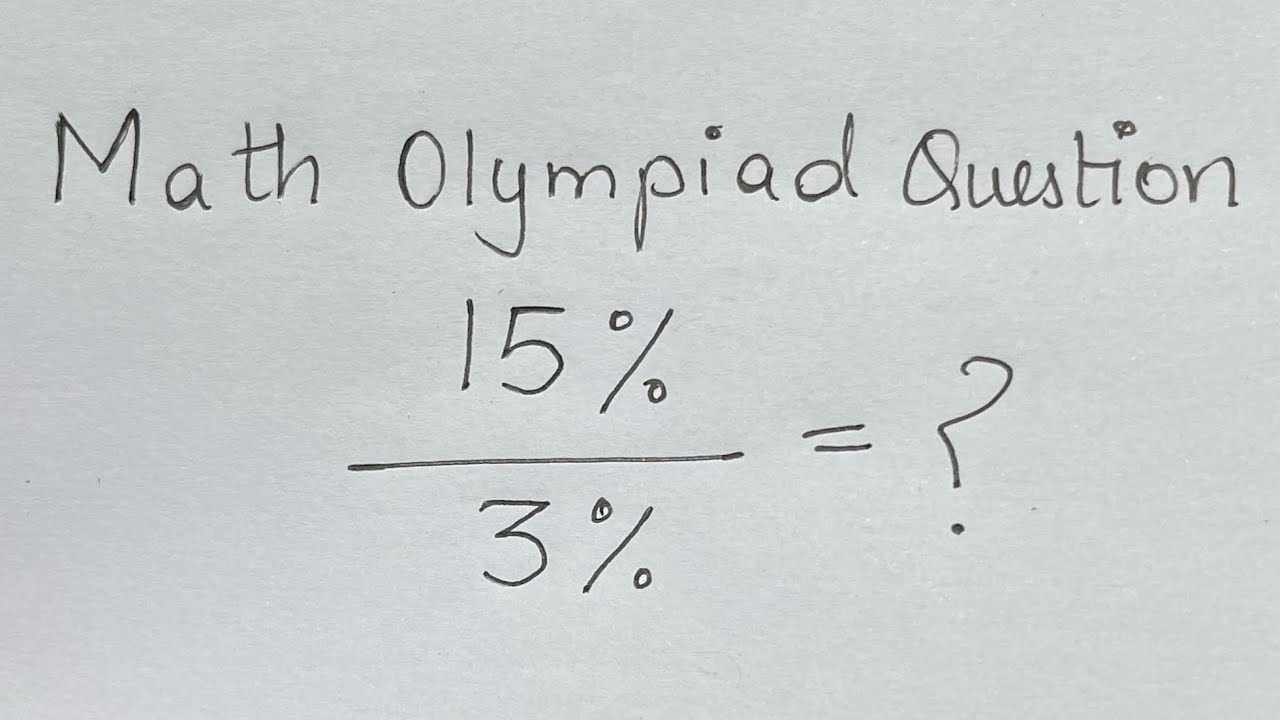 Math Olympiad Question
15%
3%
= ?